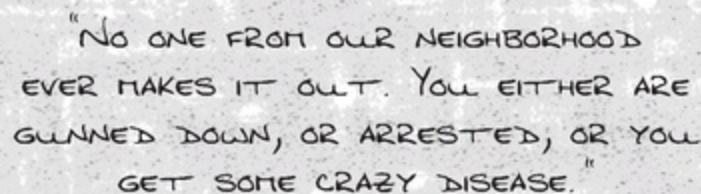 "No one from our neighborhood
ever makes it out. You either are
gunned down, or arrested, or you
get some crazy disease."